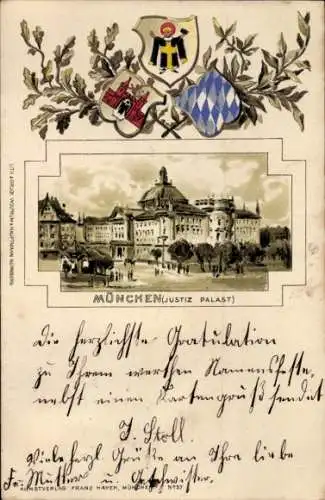 MÜNCHEN (JUSTIZ PALAST)
Die herzlichste Gratulation
zu Ihrem werthen Namensfeste,
nebst einen Kartengruß sendet
J. Stoll.
Viele herzl. Grüße an Ihre liebe
Fr. Mutter u. Geschwister.
KUNSTVERLAG FRANZ HAYER, MÜNCHEN No 37